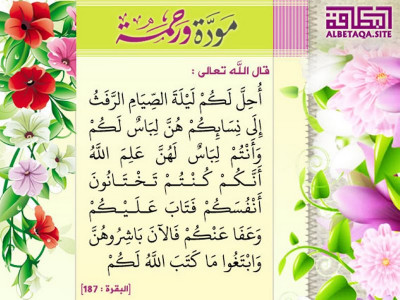 البطاقة
ALBETAQA.SITE
مودة ورحمة
قال الله تعالى :
أُحِلَّ لَكُمْ لَيْلَةَ الصِّيَامِ الرَّفَثُ
إِلَى نِسَائِكُمْ هُنَّ لِبَاسٌ لَكُمْ
وَأَنْتُمْ لِبَاسٌ لَهُنَّ عَلِمَ اللَّهُ
أَنَّكُمْ كُنْتُمْ تَخْتَانُونَ
أَنْفُسَكُمْ فَتَابَ عَلَيْكُمْ
وَعَفَا عَنْكُمْ فَالآنَ بَاشِرُوهُنَّ
وَابْتَغُوا مَا كَتَبَ اللَّهُ لَكُمْ
[البقرة : 187]